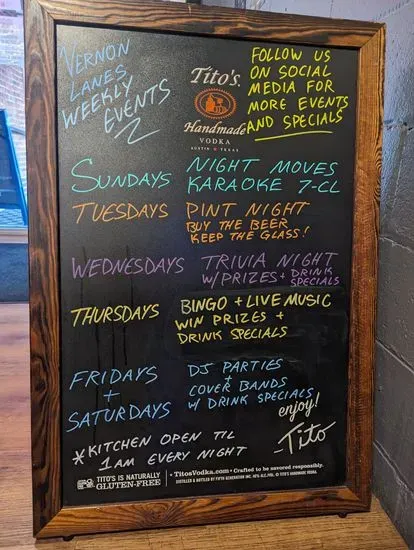 VERNON
LANES
WEEKLY
EVENTS
Tito's.
Handmade
VODKA
AUSTIN TEXAS
FOLLOW US
ON SOCIAL
MEDIA FOR
MORE EVENTS
AND SPECIALS
SUNDAYS NIGHT MOVES
KARAOKE 7-CL
TUESDAYS PINT NIGHT
BUY THE BEER
KEEP THE GLASS!
WEDNESDAYS TRIVIA NIGHT
W/PRIZES + DRINK
SPECIALS
THURSDAYS BINGO + LIVE MUSIC
WIN PRIZES +
DRINK SPECIALS
FRIDAYS
+
SATURDAYS
DJ PARTIES
+
COVER BANDS
W/ DRINK SPECIALS
enjoy!
-Tito
*KITCHEN OPEN TIL
1AM EVERY NIGHT
TITO'S IS NATURALLY
GLUTEN-FREE
• TitosVodka.com • Crafted to be savored responsibly.
DISTILLED & BOTTLED BY FIFTH GENERATION INC. 40% ALC./VOL. © TITO'S HANDMADE VODKA.